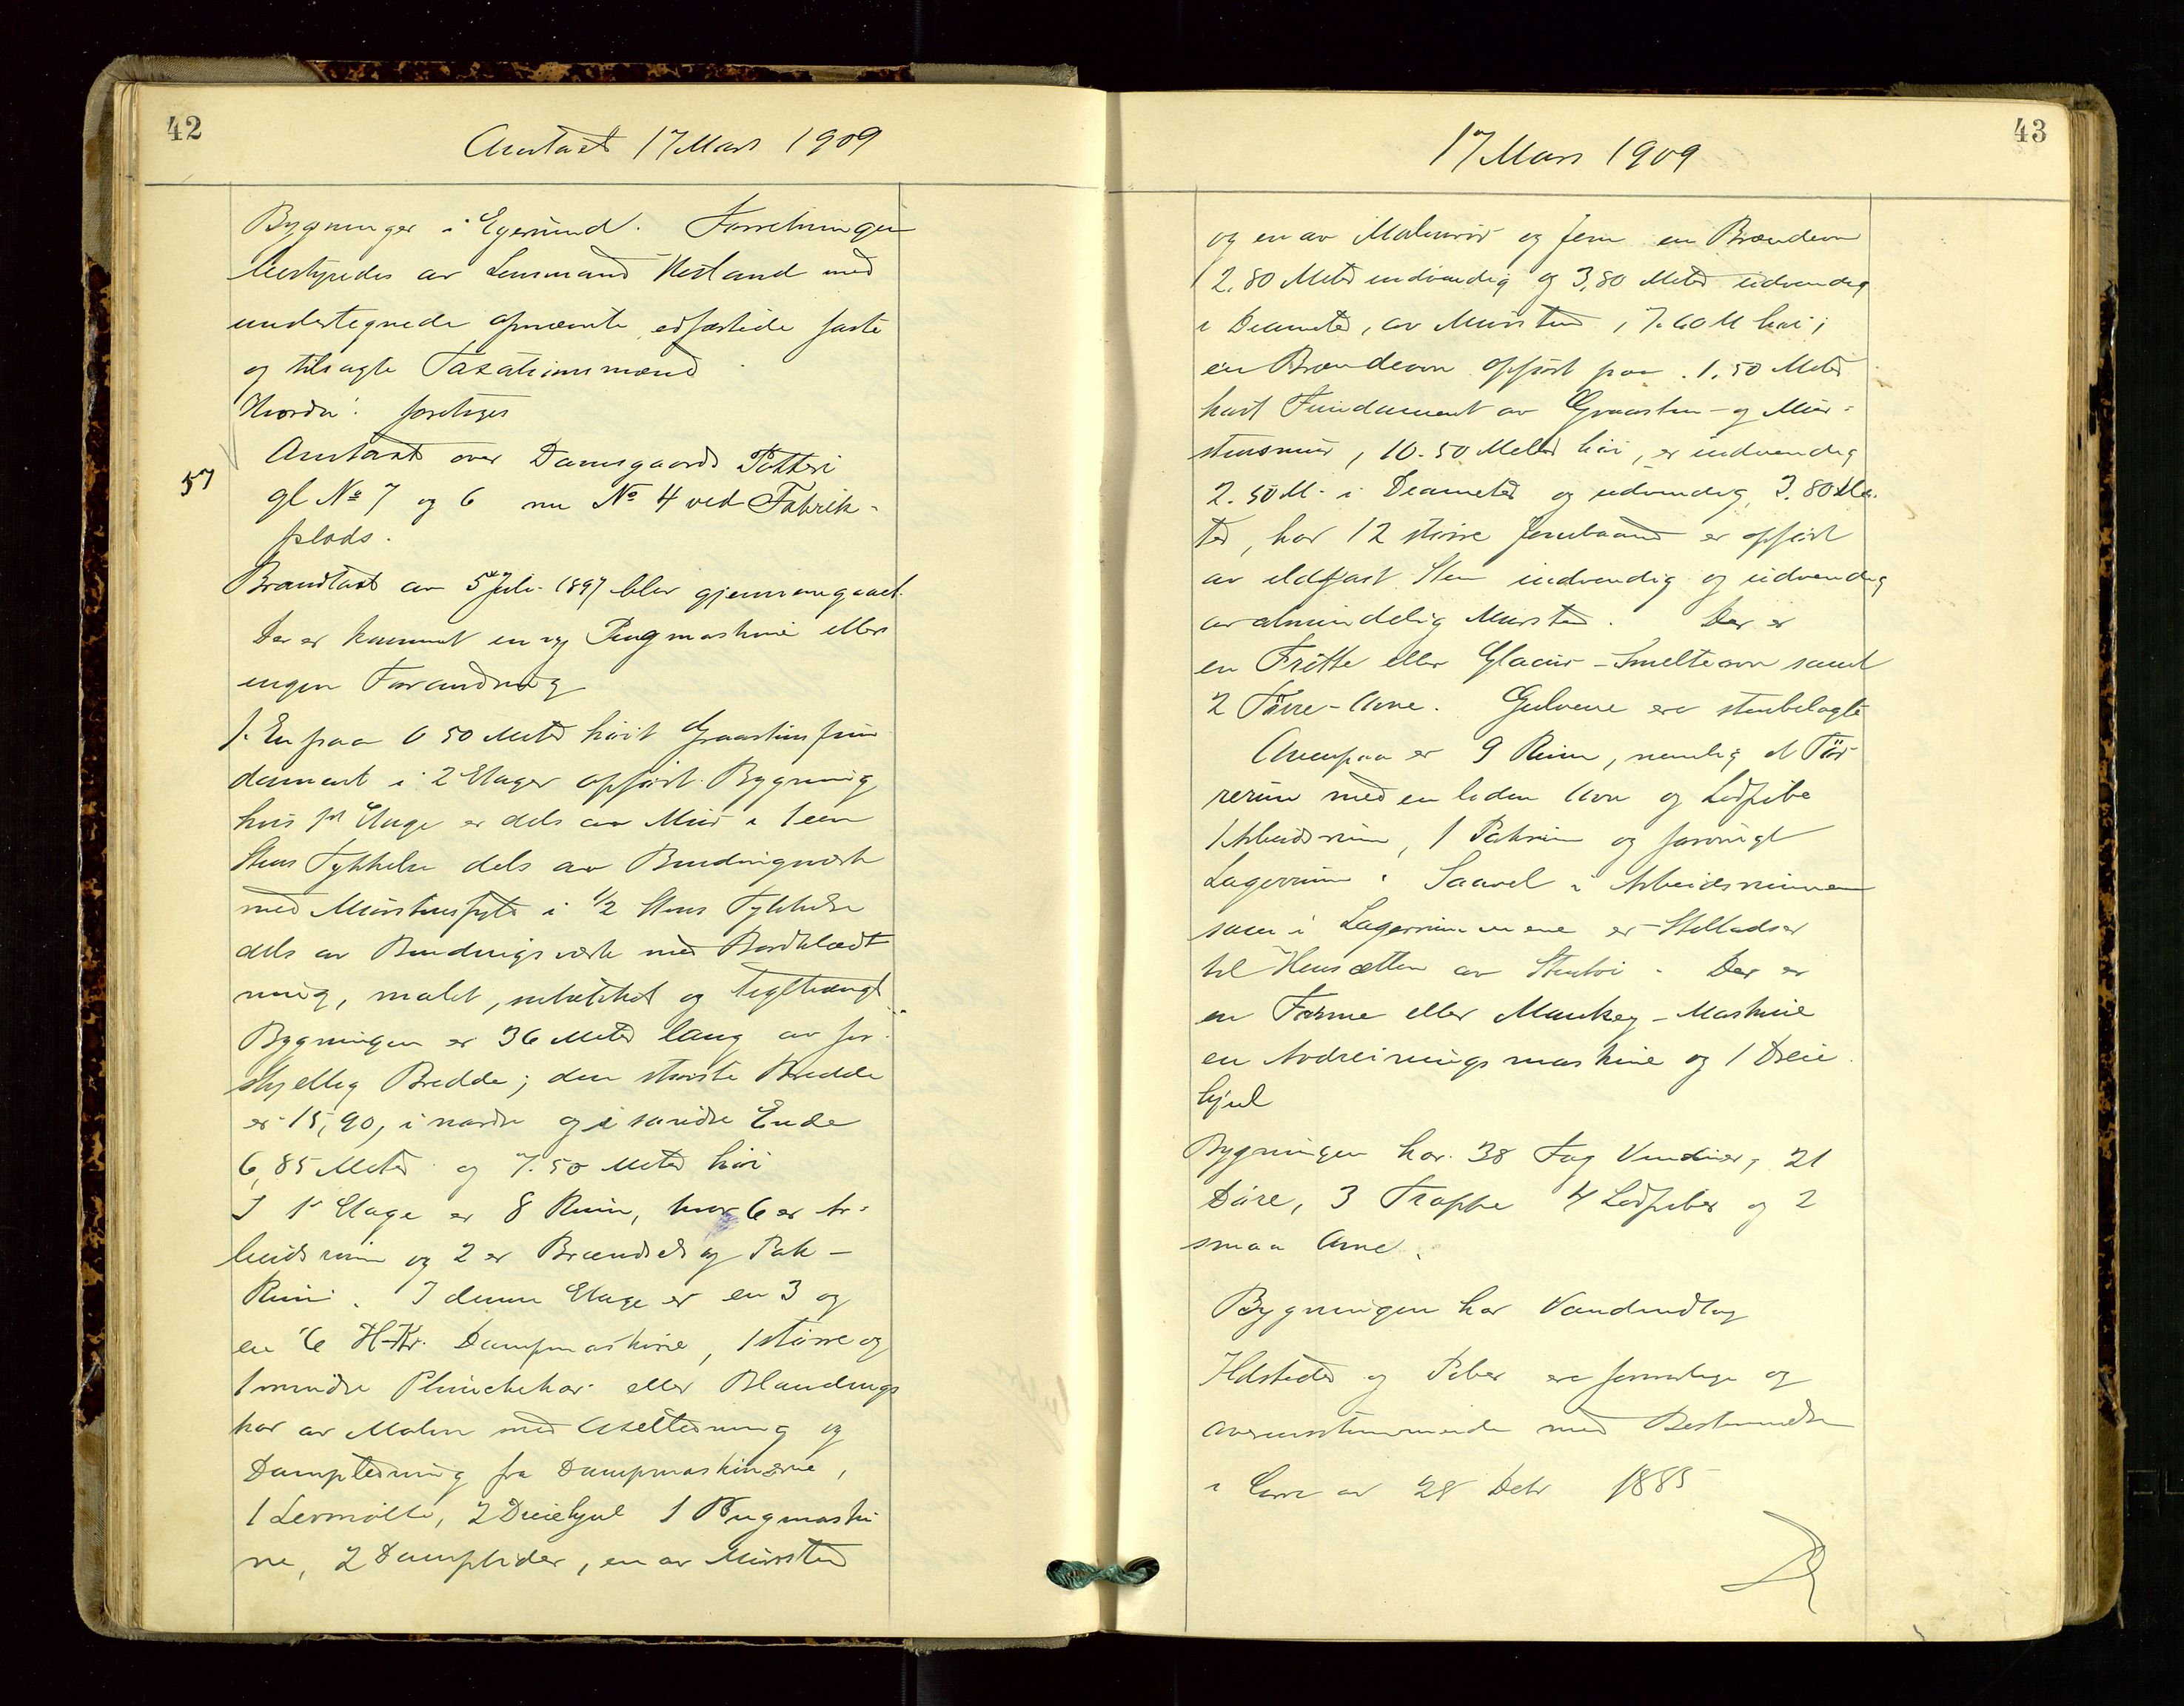 42
Omtaxt 17 Mars 1909
Bygninger i Egersund. Forretningen
bestyredes av Lensmand Hestand med
undertegnede opnævnte edfæstede faste
og tilsagte Taxationsmænd
Hvorda: foretoges
57
Omtaxt over Damsgaards Potteri
gl № 7 og 6 nu № 4 ved Fabrik-
plads.
Brandtaxt av 5te Juli 1897 blev gjennemgaaet.
Der er kommet en ny Pugmaskine ellers
ingen Forandring
1. En paa 0 50 Meter høit Graastensfun
dament i 2 Etager opført Bygning
hvis 1st Etage er dels av Mur i 1 een
Stens Tykkelse dels av Bindingverk
med Murstensfyld i 1/2 Stens Tykkelse
dels av Bindingsverk med Bordklæd
ning, malet, og Teglhængt
Bygningen er 36 Meter lang av for-
skjellig Bredde; den største Bredde
er 15,90, i nordre og i søndre Ende
6,85 Meter og 7.50 Meter høi
I 1st Etage er 8 Rum, hvor 6 er Ar-
beidsrum og 2 er Brændsels og Pak-
Rum. I denne Etage er en 3 og
en 6 H-Kr. Dampmaskine, 1 større og
1 mindre Plunchekar eller Blandings
kar av Malm med Axelledning og
Dampledning fra Dampmaskinerne,
1 Lermølle, 2 Dreiehjul 1 Pugmaski
ne, 2 Dampkider, en av Mursten
43
17 Mars 1909
og en av Malmrør og Jern en Brændeovn
2.80 Meter indvendig og 3,80 Meter udvendig
i Diameter, av Mursten, 7.60 M høi;
en Brændeovn opført paa 1.50 Meter
høit Fundament av Graasten- og Mur-
stensmur, 10.50 Meter høi, er indvendig
2.50 M. i Diameter og udvendig 3.80 Me-
ter, har 12 større Jernbaand er opført
av ildfast Sten indvendig og udvendig
av almindelig Mursten. Der er
en Fritte eller Glacur-Smelteovn samt
2 Tørre-Ovne. Gulvene ere stenbelagte
Ovenpaa er 9 Rum, nemlig et Tør
rerum med en liden Ovn og Lodpibe
1 Arbeidsrum, 1 Pakrum og forøvrigt
Lagerrum. Saavel i Arbeidsrummene
som i Lagerrummene er Stelladser
til Hensætten av Stentøi. Der er
en Forme eller Monkey-Maskine
en Avdreiningsmaskine og 1 Dreie
hjul
Bygningen har 38 Fag Vinduer, 21
Døre, 3 Trapper 4 Lodpiber og 2
smaa Ovne.
Bygningen har Vandindlæg
Ildsteder og Piber ere forsvarlige og
overensstemmende med Bestemmelsen
i av 28 Decbr 1885